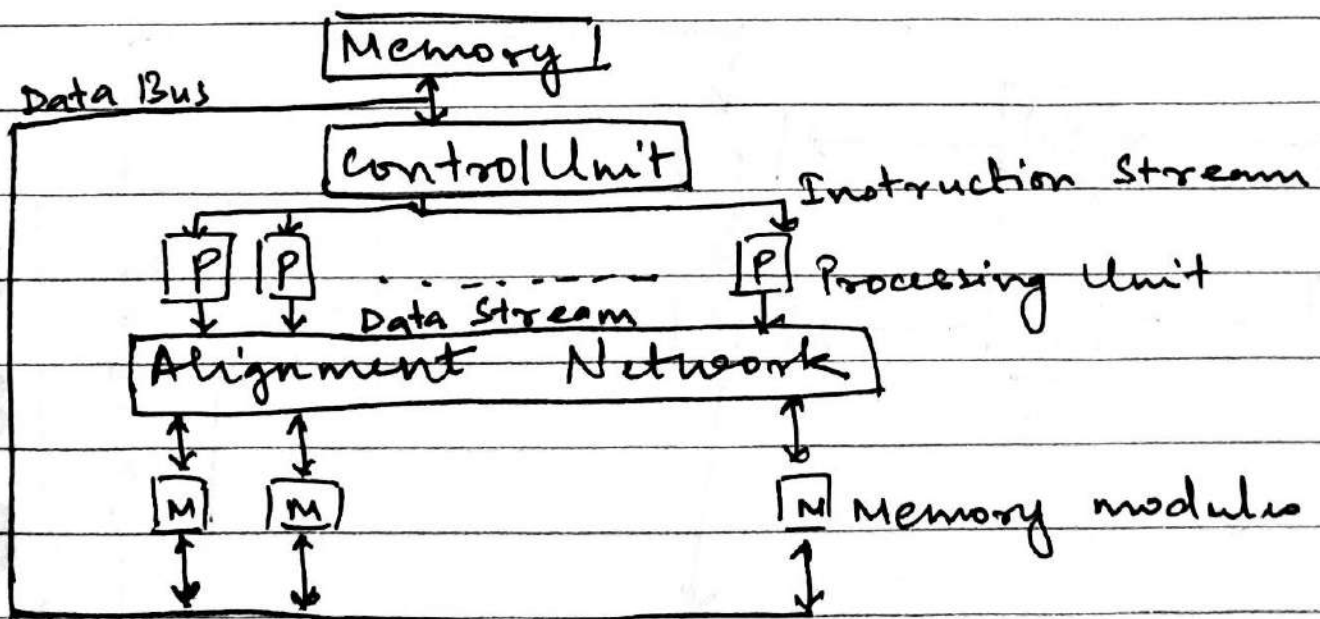 Memory
Data Bus
Control Unit
Instruction Stream
P P P Processing Unit
Data Stream
Alignment Network
M M M Memory modules